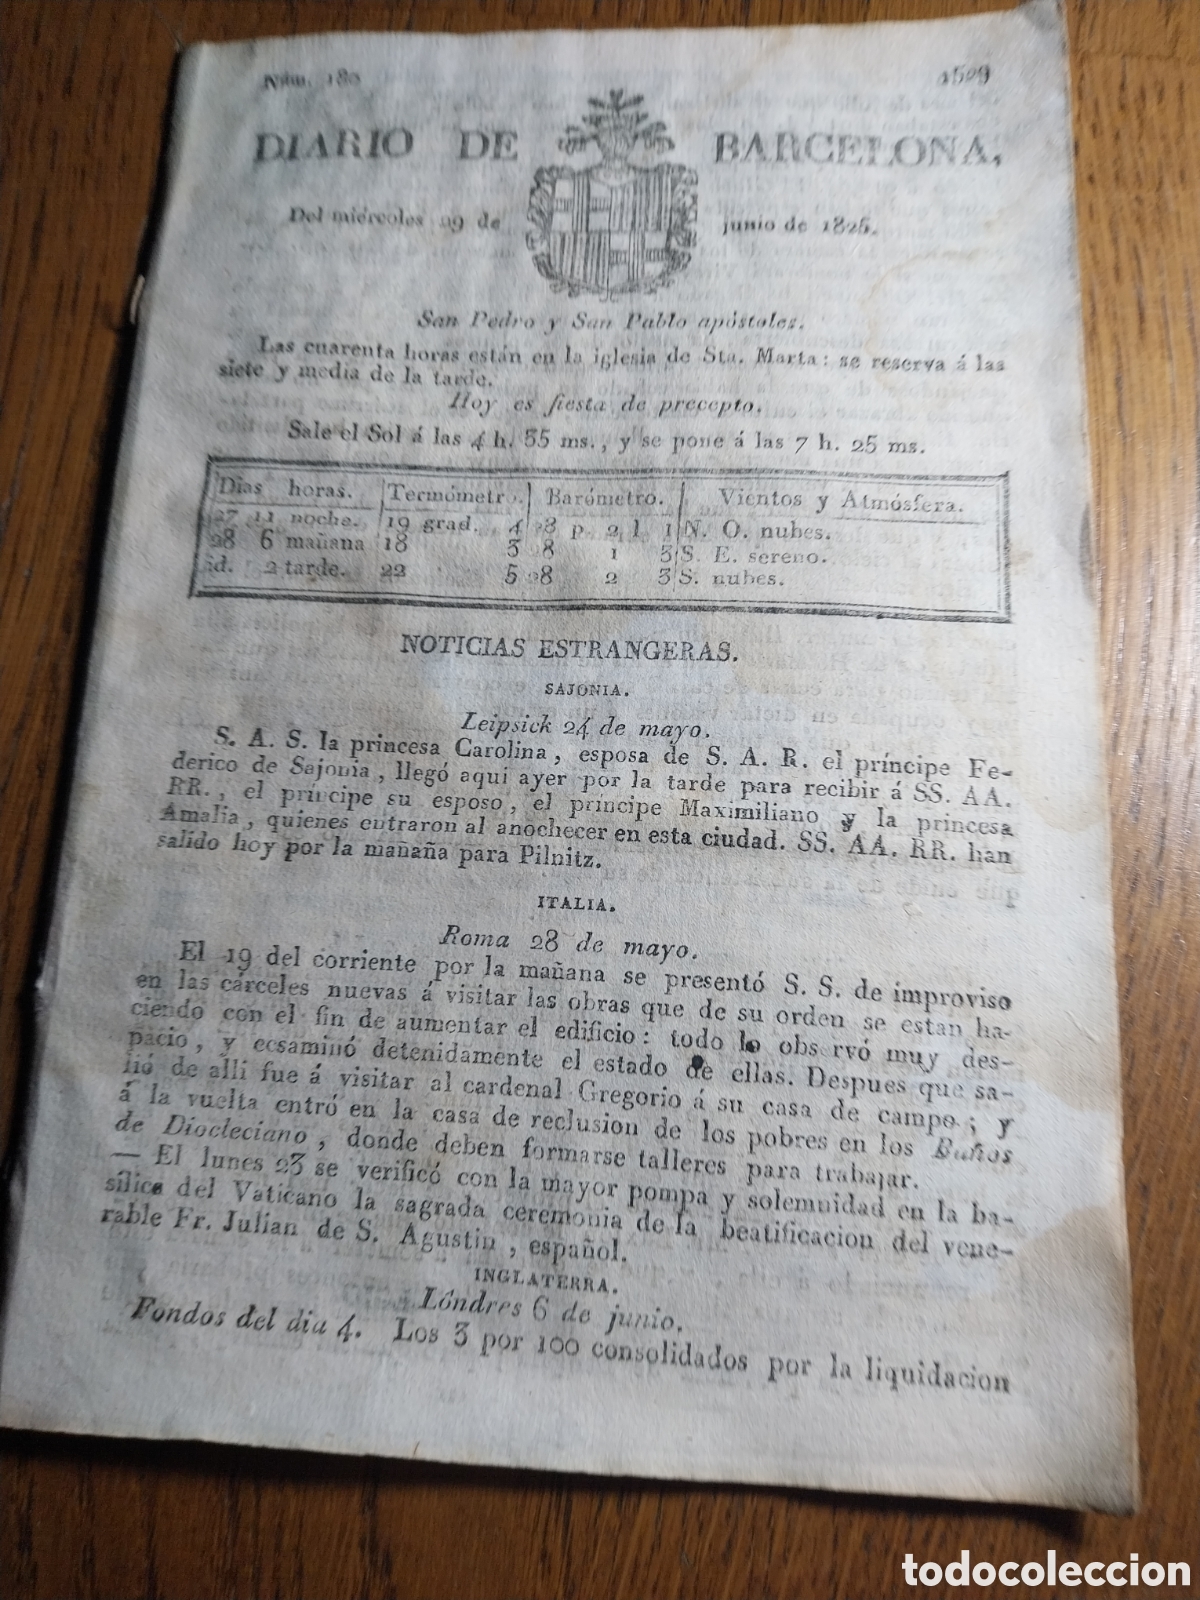 Núm. 180
1529
DIARIO DE BARCELONA,
Del miércoles 29 de junio de 1825.
San Pedro y San Pablo apóstoles.
Las cuarenta horas están en la iglesia de Sta. Marta: se reserva á las
siete y media de la tarde.
Hoy es fiesta de precepto.
Sale el Sol á las 4 h. 35 ms., y se pone á las 7 h. 25 ms.
Dias horas. Termómetro. Barómetro. Vientos y Atmósfera.
27 11 noche. 19 grad. 4 28 p. 2 l. 1 N. O. nubes.
28 6 mañana 18 3 28 1 3 S. E. sereno.
id. 2 tarde. 22 5 28 2 3 S. nubes.
NOTICIAS ESTRANGERAS.
SAJONIA.
Leipsick 24 de mayo.
S. A. S. la princesa Carolina, esposa de S. A. R. el príncipe Fe-
derico de Sajonia, llegó aqui ayer por la tarde para recibir á SS. AA.
RR., el príncipe su esposo, el príncipe Maximiliano y la princesa
Amalia, quienes entraron al anochecer en esta ciudad. SS. AA. RR. han
salido hoy por la mañana para Pilnitz.
ITALIA.
Roma 28 de mayo.
El 19 del corriente por la mañana se presentó S. S. de improviso
en las cárceles nuevas á visitar las obras que de su orden se estan ha-
ciendo con el fin de aumentar el edificio: todo lo observó muy des-
pacio, y ecsaminó detenidamente el estado de ellas. Despues que sa-
lió de alli fue á visitar al cardenal Gregorio á su casa de campo; y
á la vuelta entró en la casa de reclusion de los pobres en los Baños
de Diocleciano, donde deben formarse talleres para trabajar.
— El lunes 23 se verificó con la mayor pompa y solemnidad en la ba-
sílica del Vaticano la sagrada ceremonia de la beatificacion del vene-
rable Fr. Julian de S. Agustin, español.
INGLATERRA.
Lóndres 6 de junio.
Fondos del dia 4. Los 3 por 100 consolidados por la liquidacion
todocoleccion